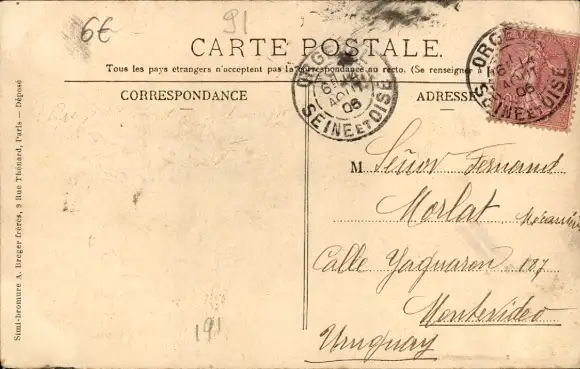 6€
91
CARTE POSTALE.
Tous les pays étrangers n'acceptent pas la correspondance au recto. (Se renseigner à la
CORRESPONDANCE
ADRESSE
ORGEVAL
AOUT
06
SEINE ET OISE
ORGEVAL
AOUT
06
SEINE ET OISE
M Señor Fernand
Morlat Mécanicien
Calle Yaguaron 187
Montevideo
Uruguay
191
Simi-bromure A. Breger frères, 9 Rue Thénard, Paris — Déposé